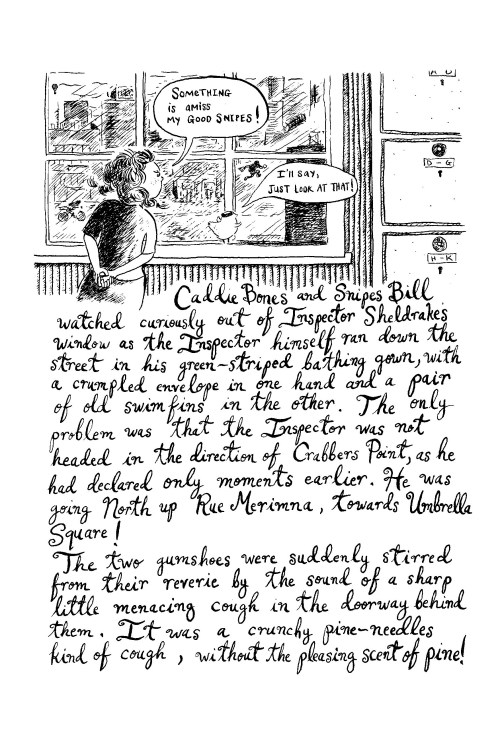 SOMETHING
is AMISS
MY GOOD SNIPES!
I'll SAY,
JUST LOOK AT THAT!
D - G
H - K
Caddie Bones and Snipes Bill
watched curiously out of Inspector Sheldrakes
window as the Inspector himself ran down the
street in his green-striped bathing gown, with
a crumpled envelope in one hand and a pair
of old swim fins in the other. The only
problem was that the Inspector was not
headed in the direction of Crabbers Point, as he
had declared only moments earlier. He was
going North up Rue Merimna, towards Umbrella
Square!
The two gumshoes were suddenly stirred
from their reverie by the sound of a sharp
little menacing cough in the doorway behind
them. It was a crunchy pine-needles
kind of cough, without the pleasing scent of pine!